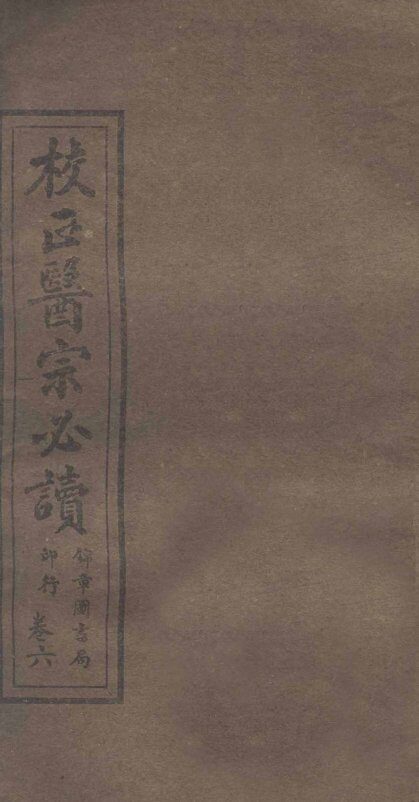 校正醫宗必讀
錦章圖書局
印行
卷六